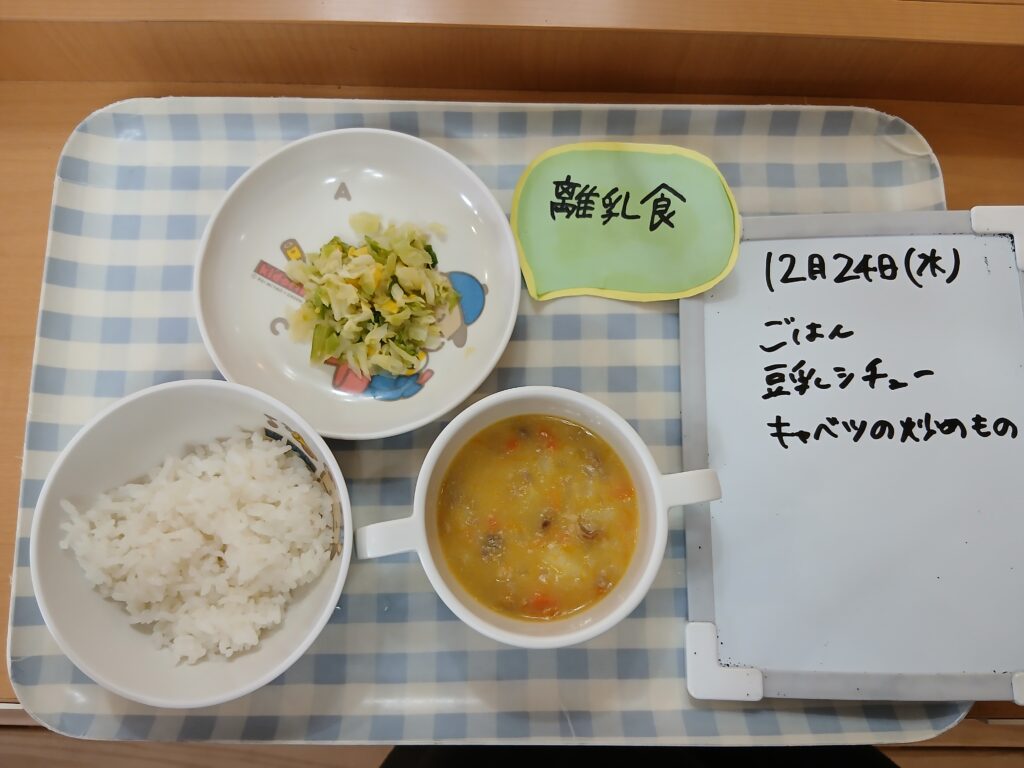 離乳食
12月24日(水)
ごはん
豆乳シチュー
キャベツの炒めもの
A
C